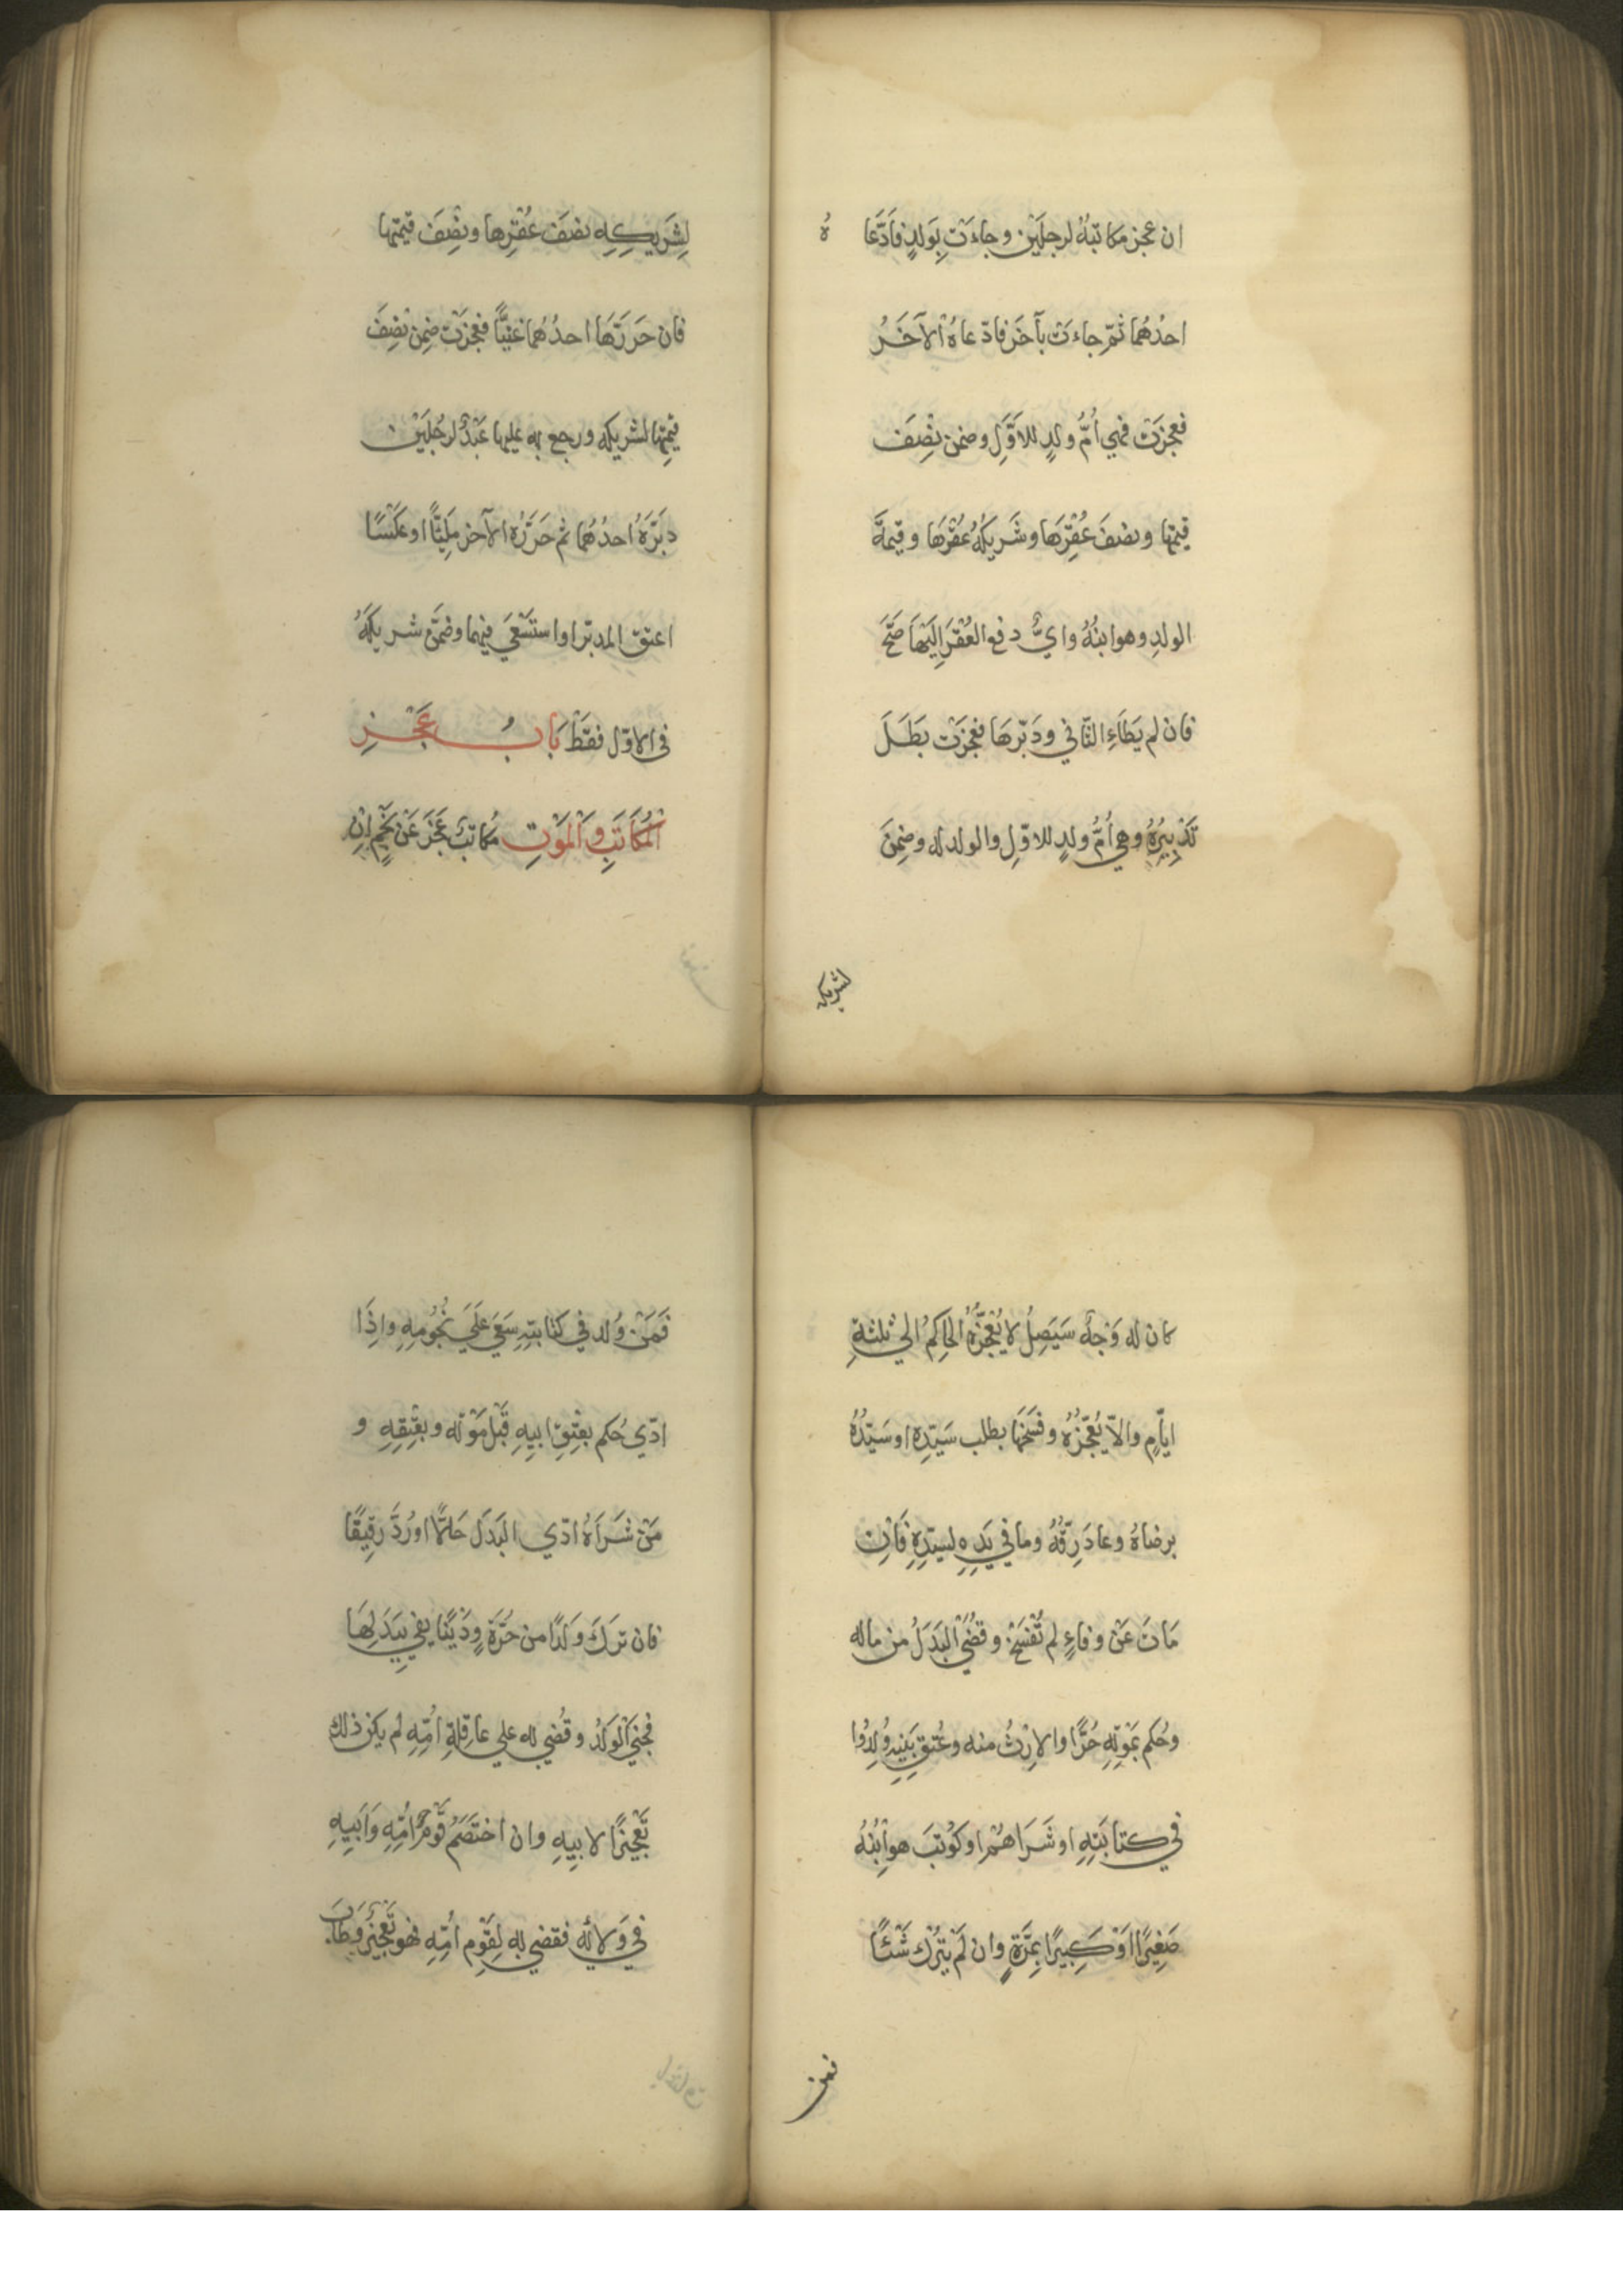 ان عجز مكاتبَةٌ لرجلَيْن وجاءَتْ بِوَلدٍ فَادَّعَا هُ
احدُهُما ثمّ جاءَتْ بآخَرَ فادّعاهُ الآخَرُ
فعجزَتْ فهي اُمُّ ولدٍ للاوَّلِ وضمن نِصْفَ
قيمتها ونصفَ عُقْرِهَا وشَريكُهُ عُقْرَهَا وقيمةَ
الولدِ وهو ابنُهُ وايٌّ دفع العُقْرَ اِلَيْهَا صَحَّ
فان لم يَطَأِ الثّاني ودَبّرهَا فعجَزَتْ بَطَلَ
تَدْبِيرُهُ وهي اُمُّ ولدٍ للاوّلِ والولد له وضَمِنَ
لشريكه
لِشَريكِهِ نصْفَ عُقْرِها ونِصْفَ قيمتِها
فان حَرَرَّهَا احدُهُما غنيًّا فعجَزَتْ ضِمن نصْفَ
قيمتِها لشريكِه ورجع به عليها عَبْدٌ لرجُلَيْن
دبَّرَهُ احدُهُما ثم حَرَّرَهُ الآخر مَلِيًّا او عَكَسَا
اعتق المدبّر او استَسْعَي فيهما وضَمَّنَ شريكَهُ
في الاوّل فقَطْ بَابُ عَجْزِ
الْمُكَاتَبِ وَالْمَوْتِ مُكاتَبٌ عَجَزَ عَنْ نَجْمٍ اِنْ
كان له وَجهٌ سَيَصِلُ لا يُعَجِّزُهُ الحاكِمُ الي ثلثةِ
ايّامٍ والاّ يُعَجِّزُهُ وفَسَخَهَا بطلب سَيّدِه او سَيّدُهُ
برضاهُ وعادَ رِقُّهُ وما في يَدِهِ لسيّدِهِ فَاِنْ
مَاتَ عَنْ وفاءٍ لم تُفْسَخْ وقُضِيَ الْبَدَلُ من ماله
وحُكم بمَوْتِهِ حُرًّا والاِرْثُ منه وعُتق بَنِيهِ وُلِدُوا
في كتابَتِهِ او شَرَاهُمْ او كوُتِبَ هو وابْنُهُ
صَغِيرًا اوْ كَبِيرًا بِمَرَّةٍ وان لَمْ يَتْرُك شَئًا
فمن
فَمَنْ وُلد في كتابتِهِ سَعَيَ عَلَيَ نُجُومِهِ واِذَا
ادّي حُكم بعِتْقِ ابيهِ قَبْلَ مَوْتِه وبعِتْقِهِ و
مَنْ شَرَاهُ ادّي البَدَلَ حَالًّا او رُدَّ رقِيقًا
فان تَرَكَ وَلَدًا من حُرَّةٍ ودَيْنًا يفي بِبَدَلِهَا
فجني الْوَلَدُ وقُضي به علي عاقِلةِ اُمّه لم يكن ذلك
تَعْجيزًا لابيهِ وان اختَصَمَ قَوْمُ اُمّه وَابَيهِ
في وَلائِه فقضي به لِقَوْمِ اُمّه فهو تَعْجِيزٌ وطَابَ